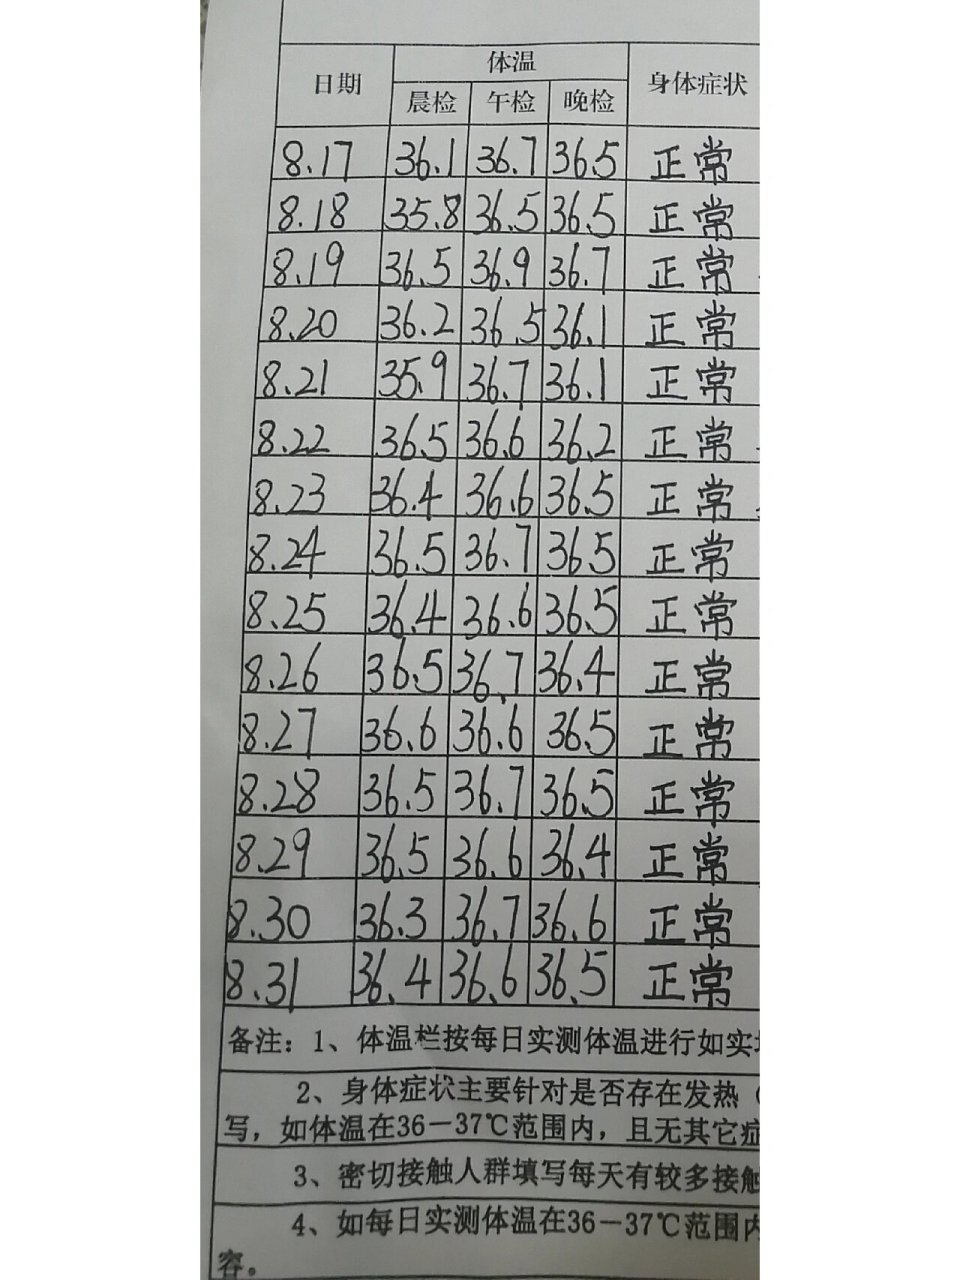 日期 体温 身体症状
晨检 午检 晚检
8.17 36.1 36.7 36.5 正常
8.18 35.8 36.5 36.5 正常
8.19 36.5 36.9 36.7 正常
8.20 36.2 36.5 36.1 正常
8.21 35.9 36.7 36.1 正常
8.22 36.5 36.6 36.2 正常
8.23 36.4 36.6 36.5 正常
8.24 36.5 36.7 36.5 正常
8.25 36.4 36.6 36.5 正常
8.26 36.5 36.7 36.4 正常
8.27 36.6 36.6 36.5 正常
8.28 36.5 36.7 36.5 正常
8.29 36.5 36.6 36.4 正常
8.30 36.3 36.7 36.6 正常
8.31 36.4 36.6 36.5 正常
备注：1、体温栏按每日实测体温进行如实
2、身体症状主要针对是否存在发热（
写，如体温在36－37℃范围内，且无其它症
3、密切接触人群填写每天有较多接触
4、如每日实测体温在36－37℃范围内
容。